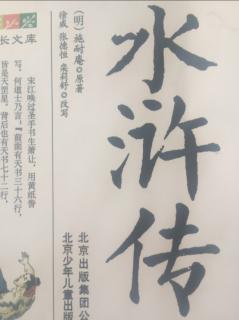 水浒传
(明)施耐庵◎原著
徐威 张德恒 栾莉舒◎改写
北京出版集团公
北京少年儿童出版
长文库
宋江唤过圣手书生萧让,用黄纸誊
写。何道士乃言:“前面有天书三十六行,
皆是天罡星。背后也有天书七十二行,